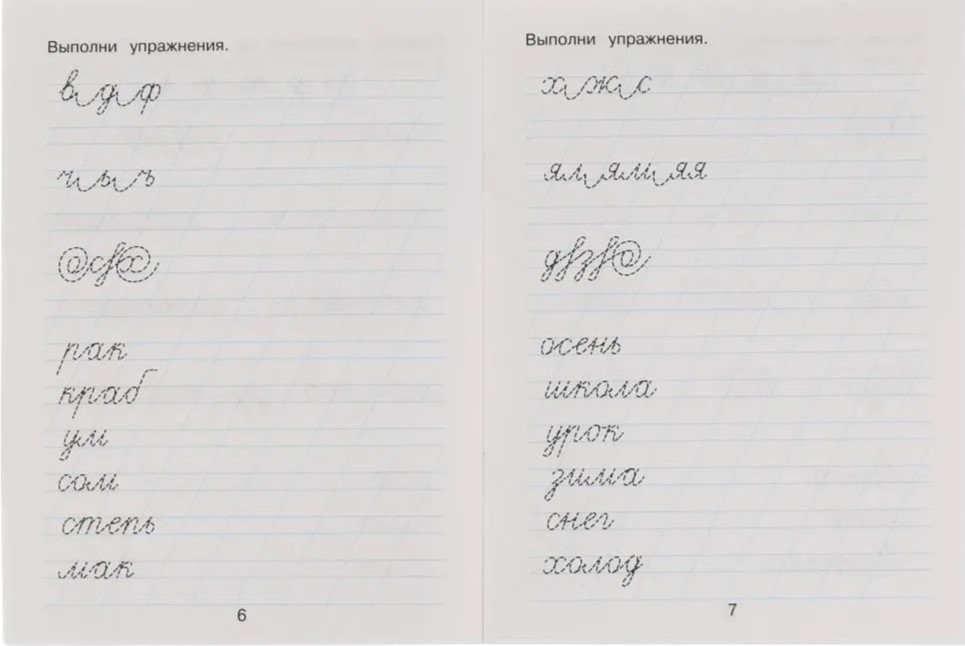 Выполни упражнения.
в д ф
ч ы ъ
рак
краб
ум
сом
степь
мак
6
Выполни упражнения.
х ж с
ял ям яя
осень
школа
урок
зима
снег
холод
7